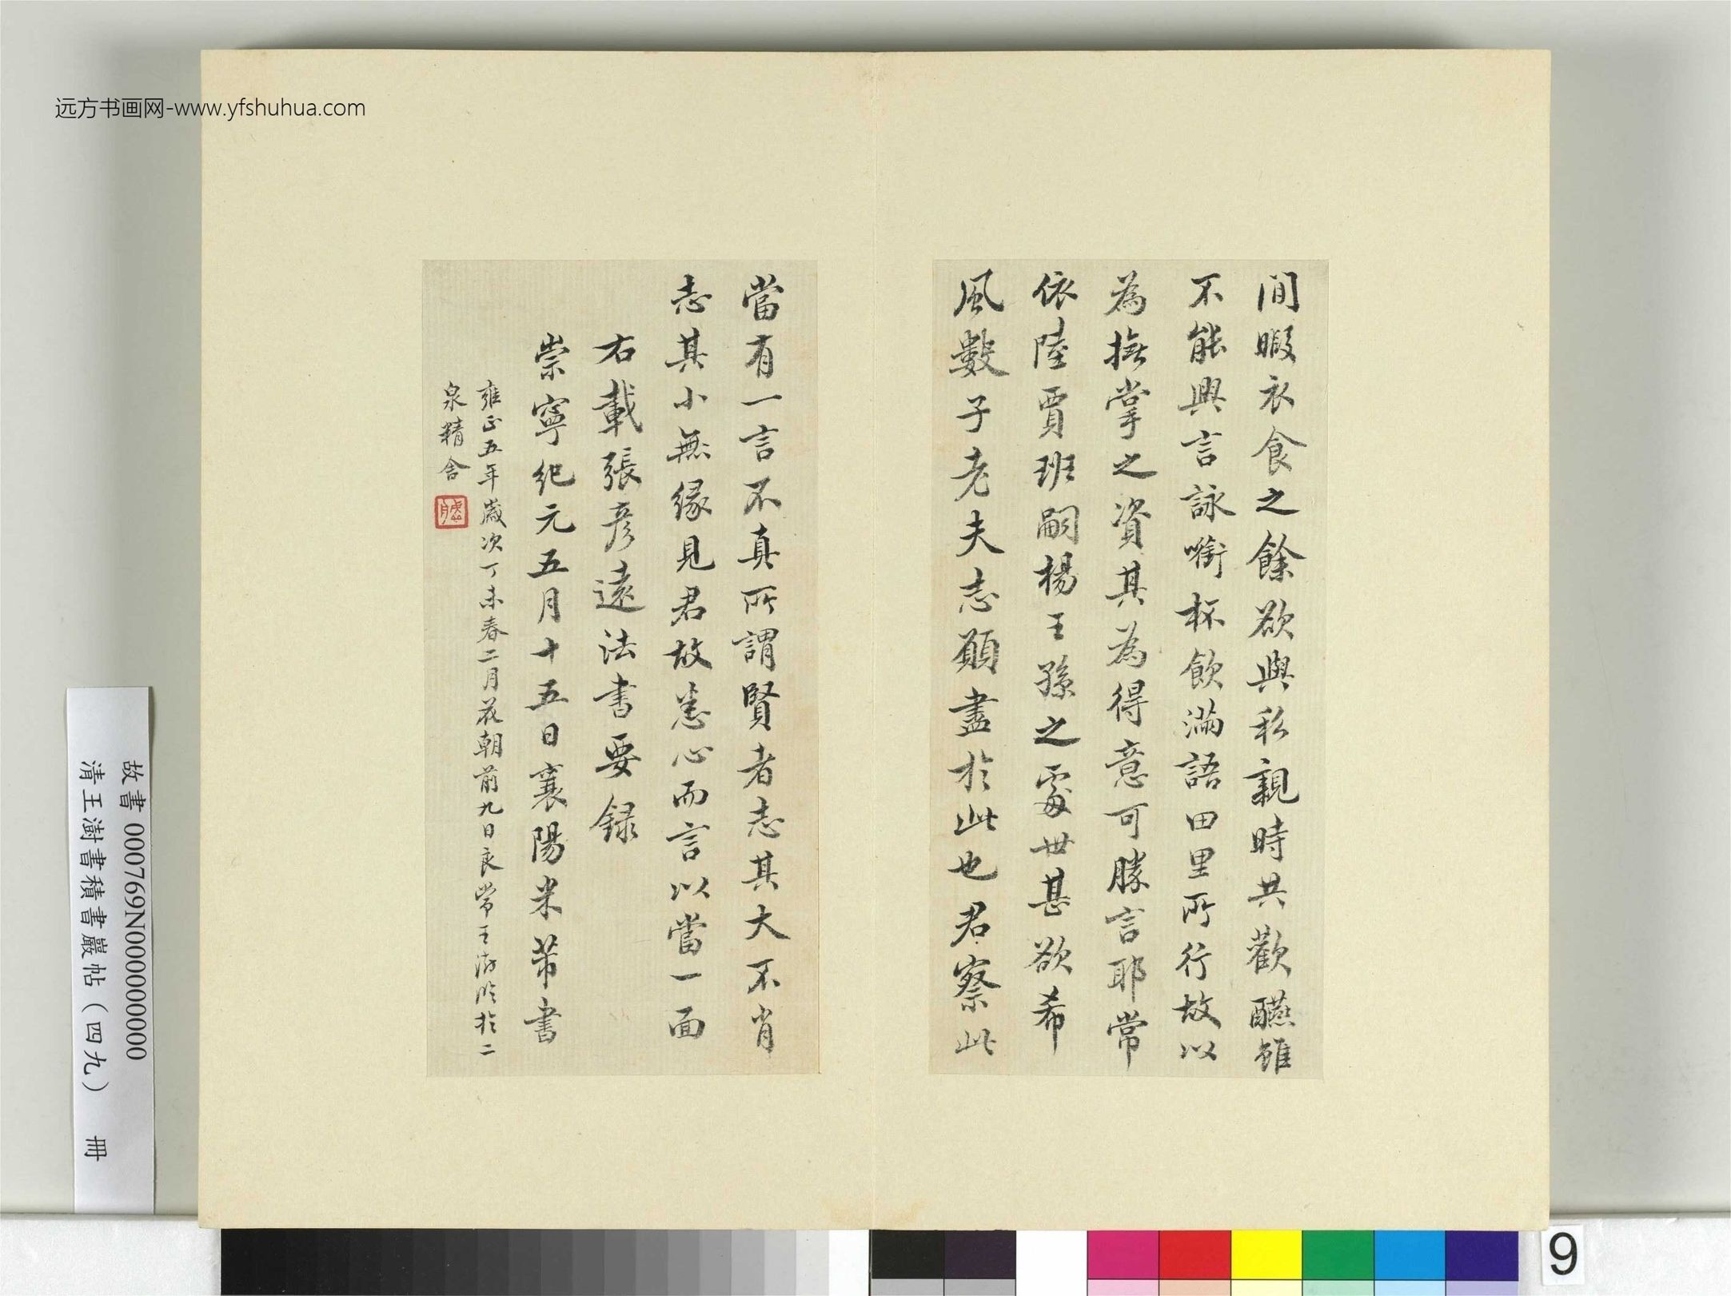 远方书画网-www.yfshuhua.com
閒暇衣食之餘欲與私親時共歡醼雖
不能興言詠銜杯飲滿語田里所行故以
為撫掌之資其為得意可勝言耶常
依陸賈班嗣楊王孫之處世甚欲希
風數子老夫志願盡於此也君察此
當有一言不真所謂賢者志其大不肖
志其小無緣見君故悉心而言以當一面
右載張彥遠法書要録
崇寧紀元五月十五日襄陽米芾書
雍正五年歲次丁未春二月花朝前九日良常王澍臨於二
泉精舍
故書 000769N000000000
清王澍書積書巖帖(四九) 冊
9